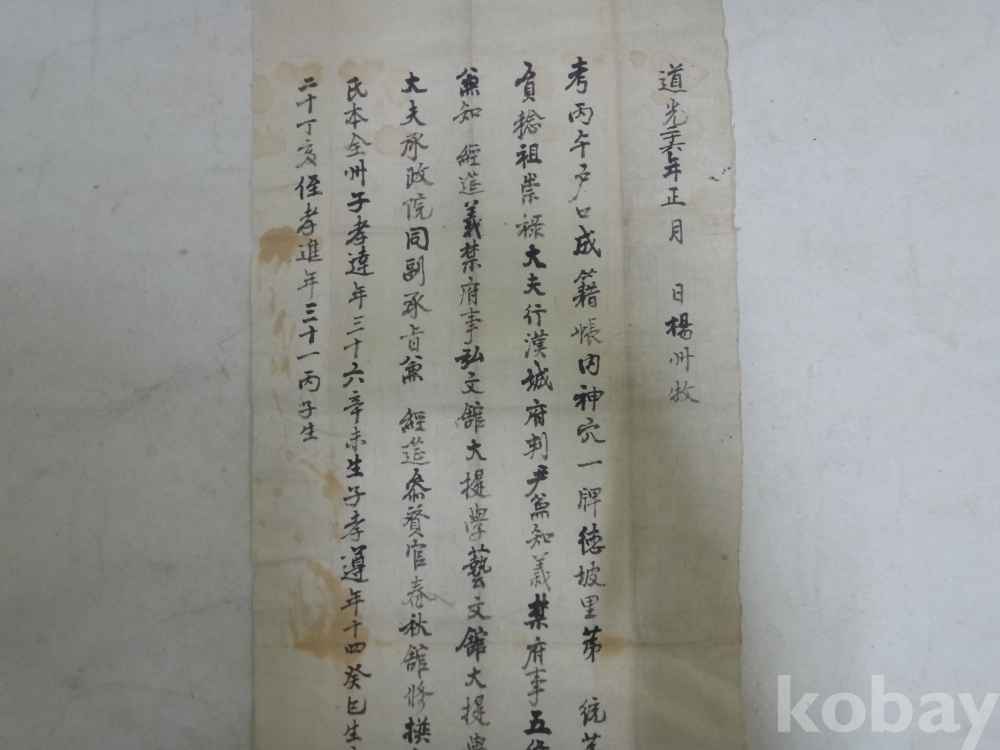 道光二十六年正月 日楊州牧
考丙午戶口成籍帳內神穴一牌德坡里第 統第
負稔祖崇祿大夫行漢城府判尹兼知義禁府事五衛
兼知 經筵義禁府事弘文館大提學藝文館大提學
大夫承政院同副承旨兼 經筵叅賛官春秋館修撰
氏本全州子孝達年三十六辛未生子孝遵年十四癸巳生
二十丁亥侄孝進年三十一丙子生
kobay